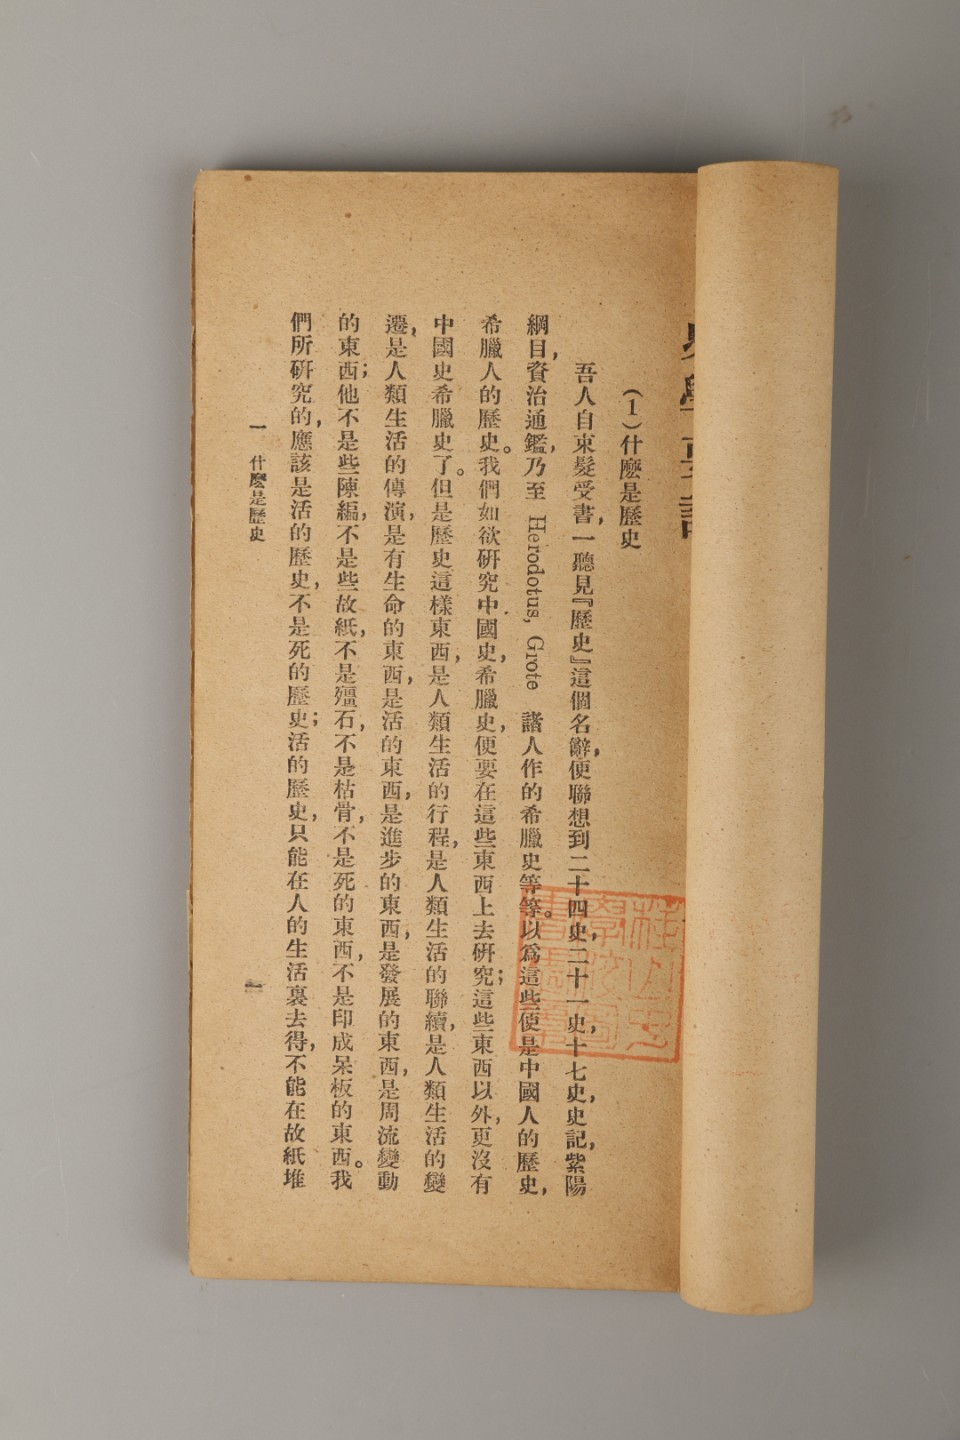 史學要論
(1)什麽是歷史
吾人自束髮受書,一聽見『歷史』這個名辭,便聯想到二十四史,二十一史,十七史,史記,紫陽
綱目,資治通鑑,乃至 Herodotus, Grote 諸人作的希臘史等等。以爲這些便是中國人的歷史,
希臘人的歷史。我們如欲研究中國史,希臘史,便要在這些東西上去研究;這些東西以外,更沒有
中國史希臘史了。但是歷史這樣東西,是人類生活的行程,是人類生活的聯續,是人類生活的變
遷,是人類生活的傳演,是有生命的東西,是活的東西,是進步的東西,是發展的東西,是周流變動
的東西;他不是些陳編,不是些故紙,不是殭石,不是枯骨,不是死的東西,不是印成呆板的東西。我
們所研究的,應該是活的歷史,不是死的歷史;活的歷史,只能在人的生活裏去得,不能在故紙堆
一 什麽是歷史
一